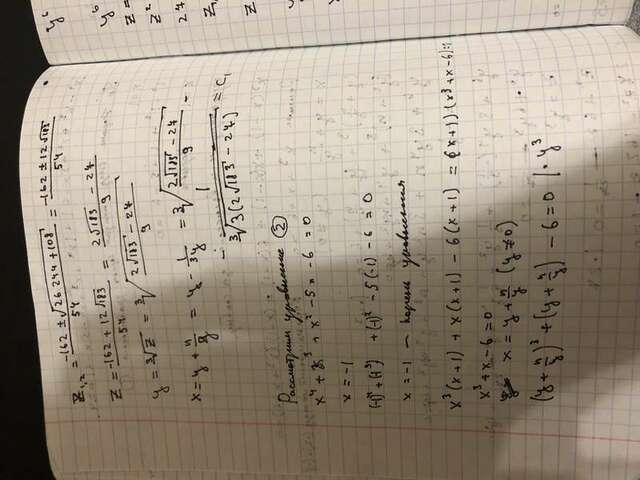 Z₁,₂ = (-162 ± √(26 244 + 108)) / 54 = (-162 ± 12√183) / 54
Z = (-162 + 12√183) / 54 = (2√183 - 27) / 9
y = ∛Z = ∛((2√183 - 27) / 9)
x = y + n/y = y - 1/(3y) = ∛((2√183 - 27) / 9) -
- 1 / ∛(3(2√183 - 27)) = C₁
Рассмотрим уравнение ②
x⁴ + x³ + x² - 5x - 6 = 0
x = -1
(-1)⁴ + (-1³) + (-1)² - 5(-1) - 6 = 0
x = -1 - корень уравнения
x³(x+1) + x(x+1) - 6(x+1) = (x+1)·(x³+x-6)=
x³ + x - 6 = 0
x = y + n/y (y ≠ 0)
(y + n/y)³ + (y + n/y) - 6 = 0 | · y³
y⁶
y⁶
Z =
Z²
27
Z₁
Z